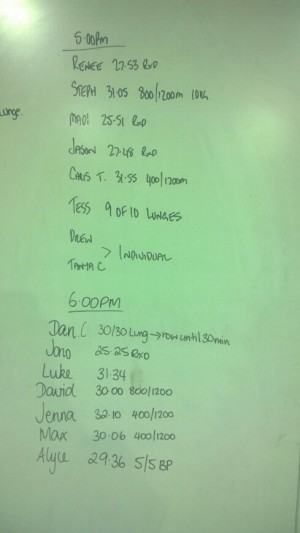 5:00PM
Lunge.
RENEE 27.53 RXD
STEPH 31.05 800/1200m 10KG
MADI 25.51 RXD
JASON 27.48 RXD
CHRIS T. 31.55 400/1200m
TESS 9 OF 10 LUNGES
DREW
> INDIVIDUAL
TANYA C
6:00PM
Dan.C 30/30 Lung → row until 30min
Jono 25.25 RXD
Luke 31.34
David 30.00 800/1200
Jenna 32.10 400/1200
Max 30.06 400/1200
Alyce 29.36 5/5 BP